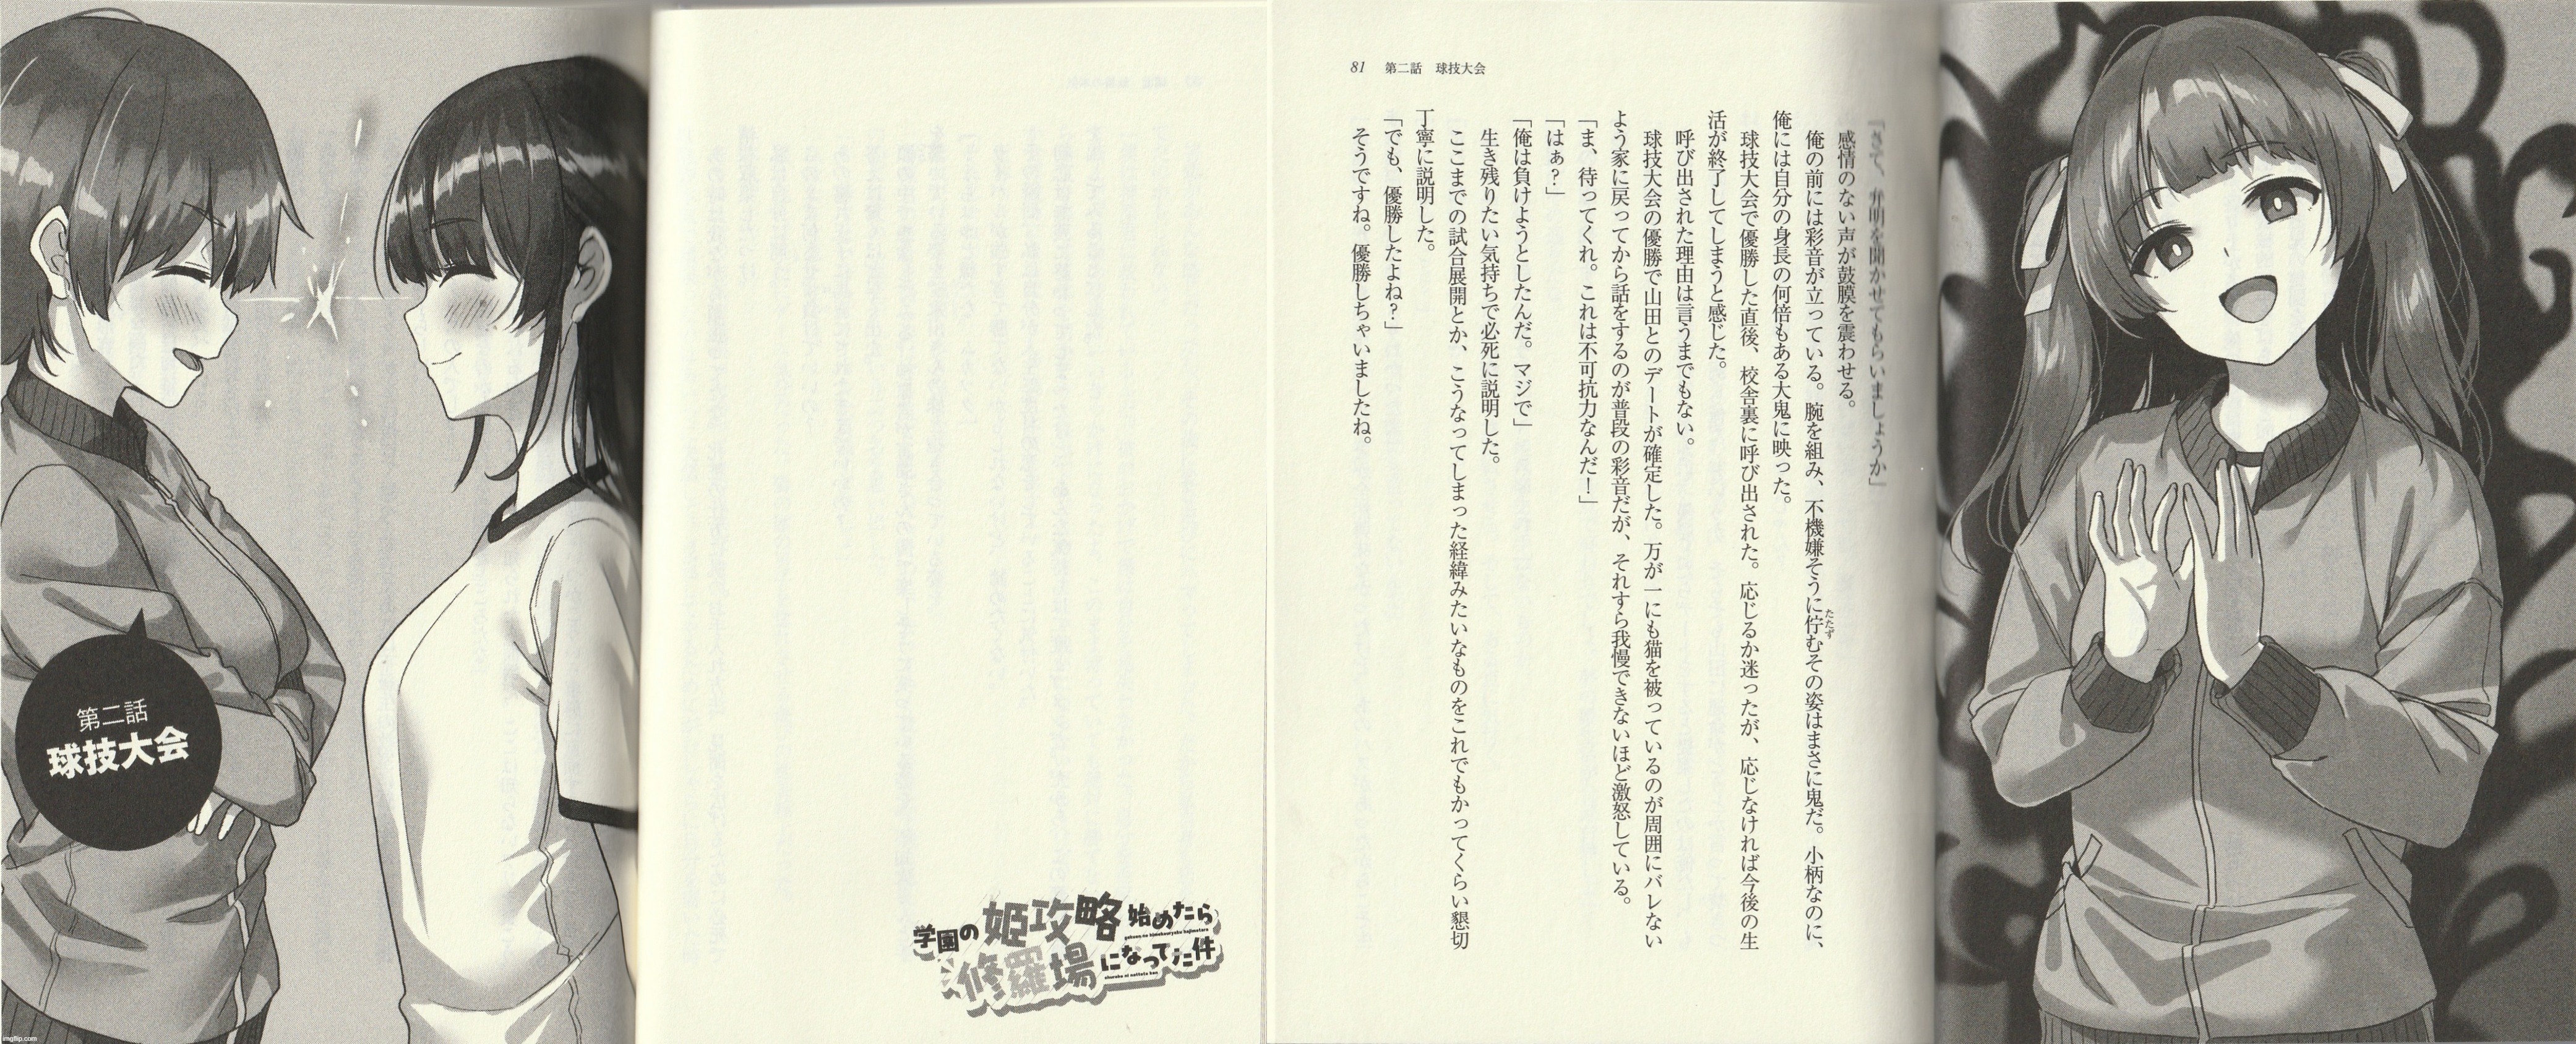 第二話
球技大会
学園の姫攻略始めたら
gakuen no himekouryaku hajimetara
修羅場になってた件
shuraba ni natteta ken
81 第二話 球技大会
「さて、弁明を聞かせてもらいましょうか」
感情のない声が鼓膜を震わせる。
俺の前には彩音が立っている。腕を組み、不機嫌そうに佇むその姿はまさに鬼だ。小柄なのに、
たたず
俺には自分の身長の何倍もある大鬼に映った。
球技大会で優勝した直後、校舎裏に呼び出された。応じるか迷ったが、応じなければ今後の生
活が終了してしまうと感じた。
呼び出された理由は言うまでもない。
球技大会の優勝で山田とのデートが確定した。万が一にも猫を被っているのが周囲にバレない
よう家に戻ってから話をするのが普段の彩音だが、それすら我慢できないほど激怒している。
「ま、待ってくれ。これは不可抗力なんだ！」
「はぁ？」
「俺は負けようとしたんだ。マジで」
生き残りたい気持ちで必死に説明した。
ここまでの試合展開とか、こうなってしまった経緯みたいなものをこれでもかってくらい懇切
丁寧に説明した。
「でも、優勝したよね？」
そうですね。優勝しちゃいましたね。
imgflip.com